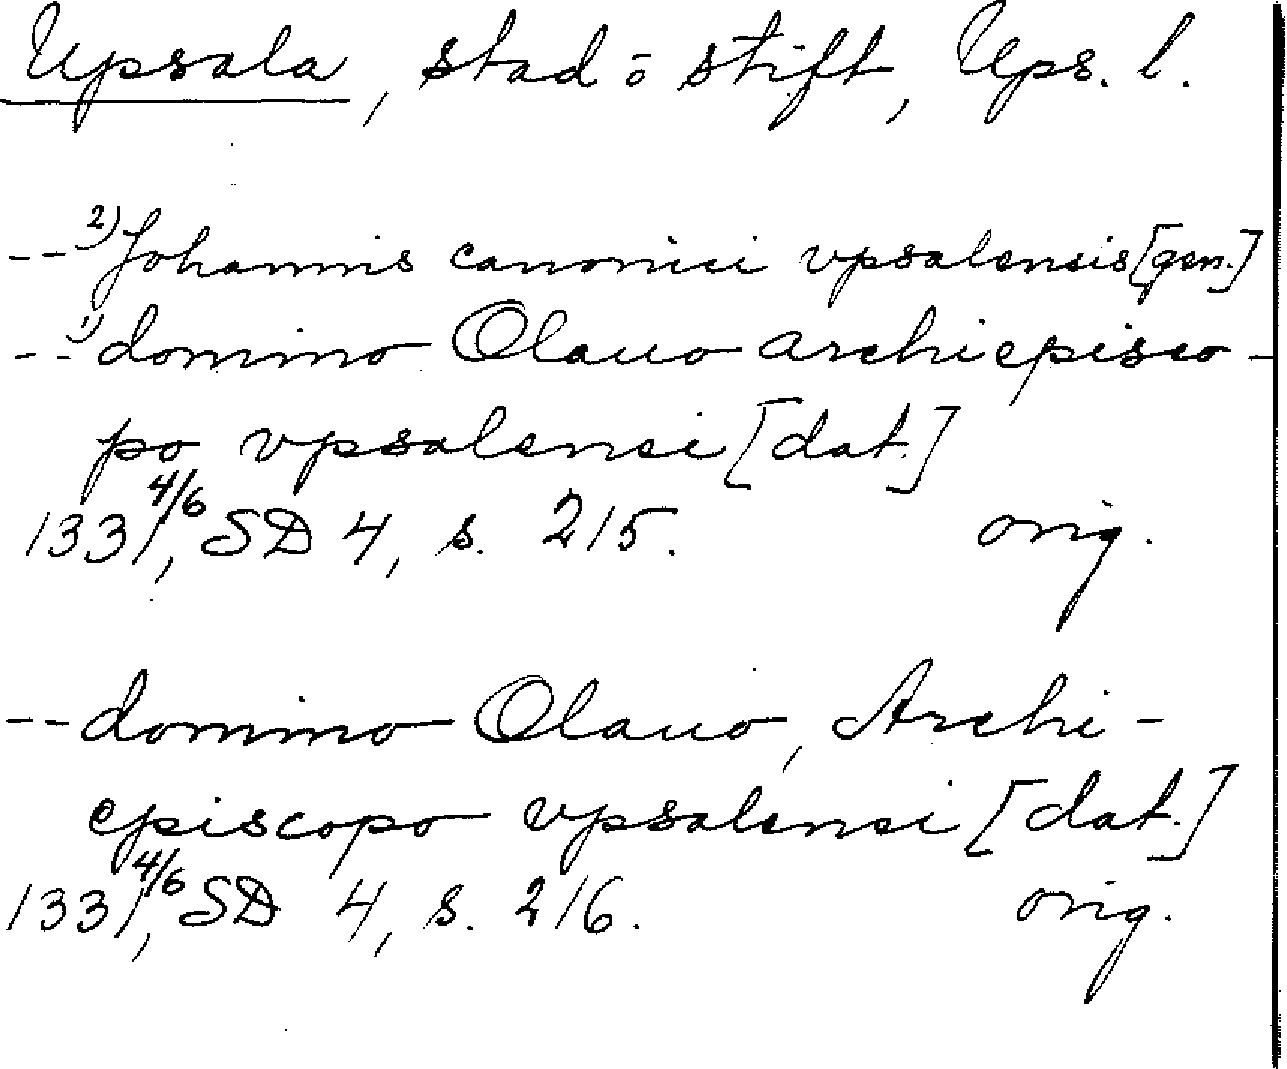 Upsala, stad o stift, Ups. l.
-- 2) Johannis canonici vpsalensis [gen.]
-- 1) domino Olauo archiepisco-
po vpsalensi [dat.]
1331 4/6, SD 4, s. 215. orig.
-- domino Olauo, Archi-
episcopo vpsalensi [dat.]
1331 4/6, SD 4, s. 216. orig.